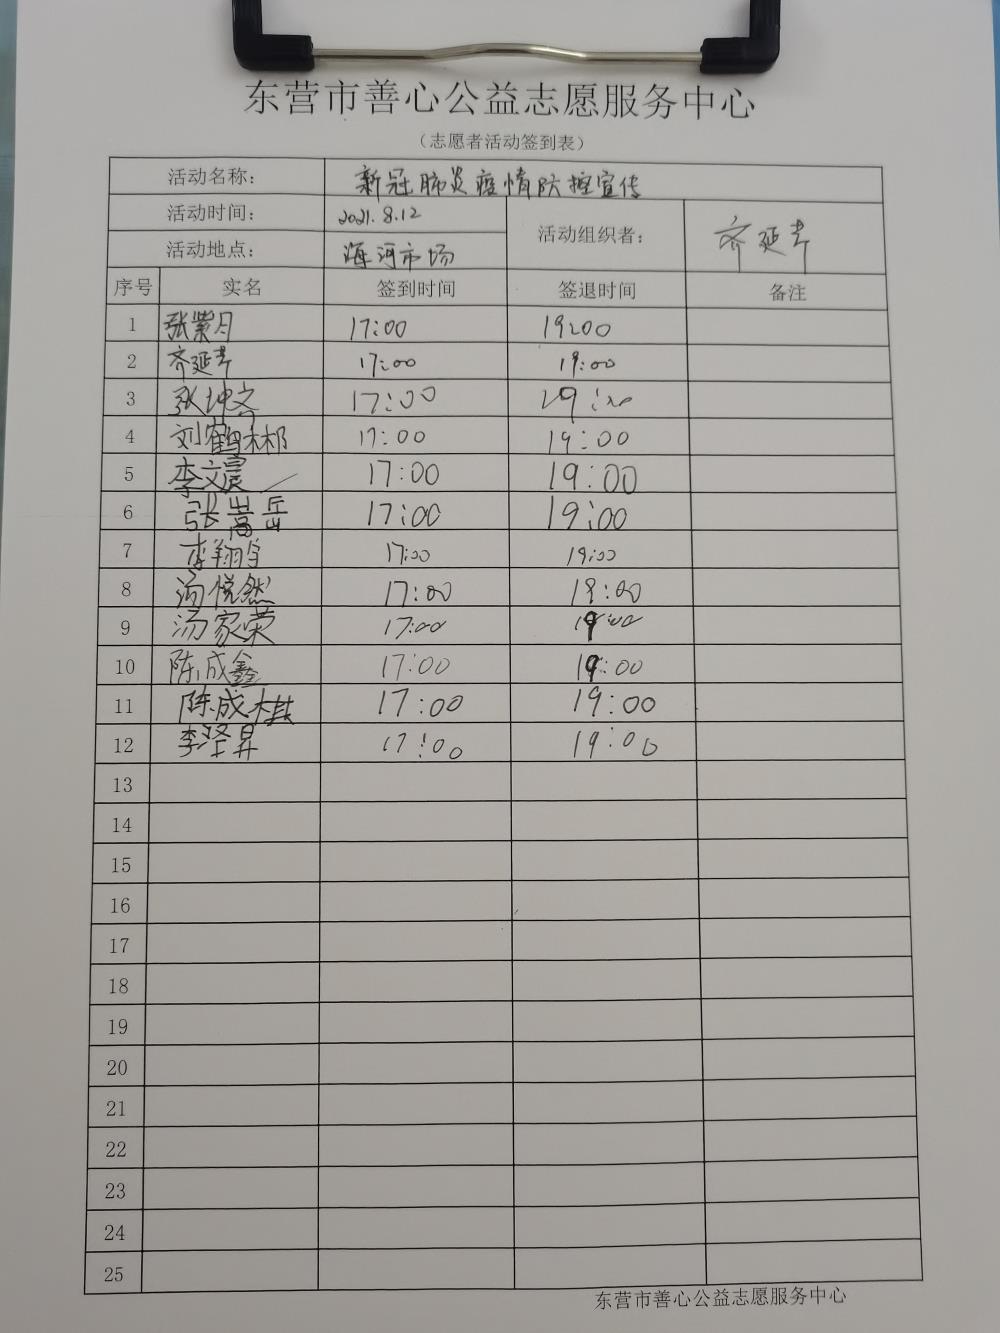 东营市善心公益志愿服务中心
（志愿者活动签到表）
活动名称： 新冠肺炎疫情防控宣传
活动时间： 2021.8.12 活动组织者： 齐延芹
活动地点： 海河市场
序号 实名 签到时间 签退时间 备注
1 张紫月 17:00 19:00
2 齐延芹 17:00 19:00
3 张坤 17:00 19:00
4 刘鹤彬 17:00 19:00
5 李文震 17:00 19:00
6 张嵩岳 17:00 19:00
7 李翔宇 17:00 19:00
8 汤悦然 17:00 19:00
9 汤家荣 17:00 19:00
10 陈成鑫 17:00 19:00
11 陈成棋 17:00 19:00
12 李泽昇 17:00 19:00
13
14
15
16
17
18
19
20
21
22
23
24
25
东营市善心公益志愿服务中心